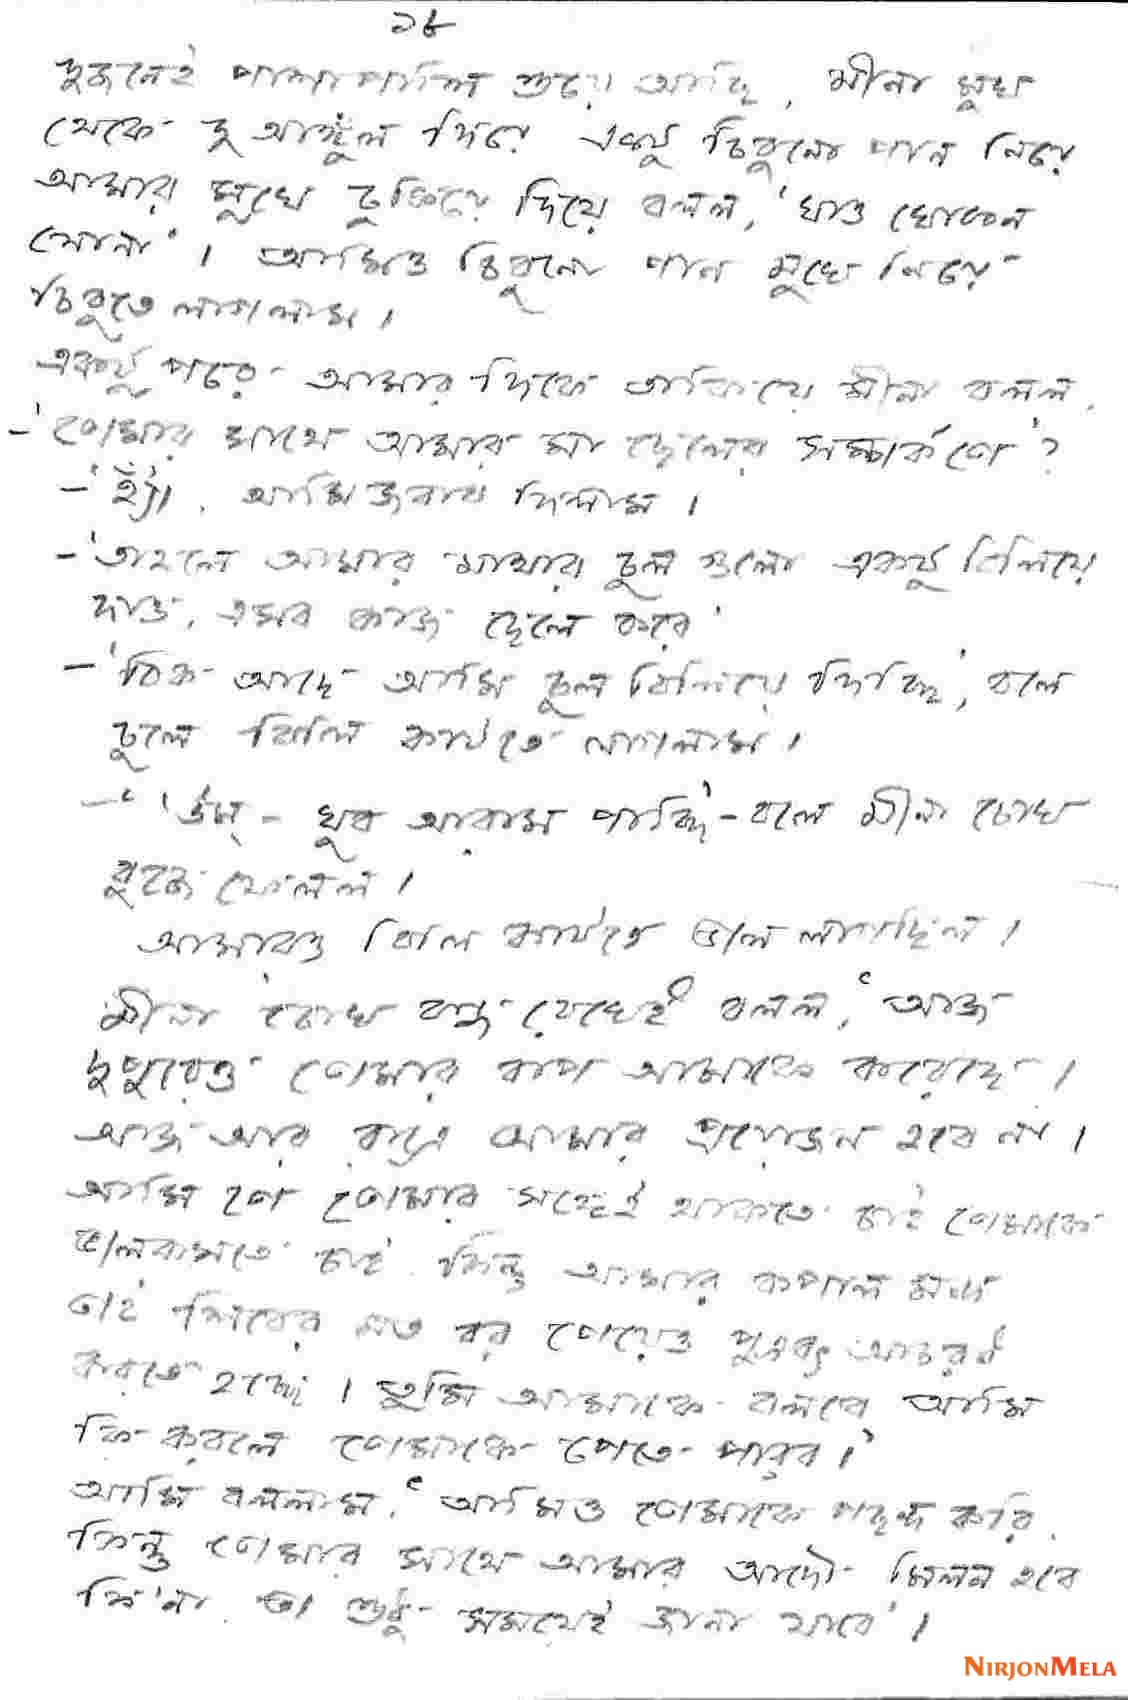 ১৮
দুজনেই পাশাপাশি শুয়ে আছি, মীনা মুখ
থেকে দু আঙ্গুল দিয়ে একটু চিবুনো পান নিয়ে
আমার মুখে ঢুকিয়ে দিয়ে বলল, 'খাও খোকন
সোনা'। আমিও চিবুনো পান মুখে নিয়ে
চিবুতে লাগলাম।
একটু পরে আমার দিকে তাকিয়ে মীনা বলল,
-'তোমার সাথে আমার মা ছেলের সম্পর্ক তো'?
-'হ্যাঁ', আমি জবাব দিলাম।
-'তাহলে আমার মাথার চুল গুলো একটু বিলিয়ে
দাও, এসব কাজ ছেলে করে'
-'ঠিক আছে আমি চুল বিলিয়ে দিচ্ছি', বলে
চুলে বিলি কাটতে লাগলাম।
-'উম্ - খুব আরাম পাচ্ছি' - বলে মীনা চোখ
বুজে ফেলল।
আমারও বিলি কাটতে ভাল লাগছিল।
মীনা চোখ বন্ধ রেখেই বলল, 'আজ
দুপুরেও তোমার বাপ আমাকে করেছে।
আজ আর রাত্রে আমার প্রয়োজন হবে না।
আমি তো তোমার সঙ্গেই থাকতে চাই তোমাকে
ভালবাসতে চাই কিন্তু আমার কপাল মন্দ
তাই শিবের মত বর পেয়েও পুত্রবৎ আচরণ
করতে হচ্ছে। তুমি আমাকে বলবে আমি
কি করলে তোমাকে পেতে পারব।'
আমি বললাম, 'আমিও তোমাকে পছন্দ করি,
কিন্তু তোমার সাথে আমার আদৌ মিলন হবে
কি'না তা শুধু সময়েই জানা যাবে'।
NIRJONMELA